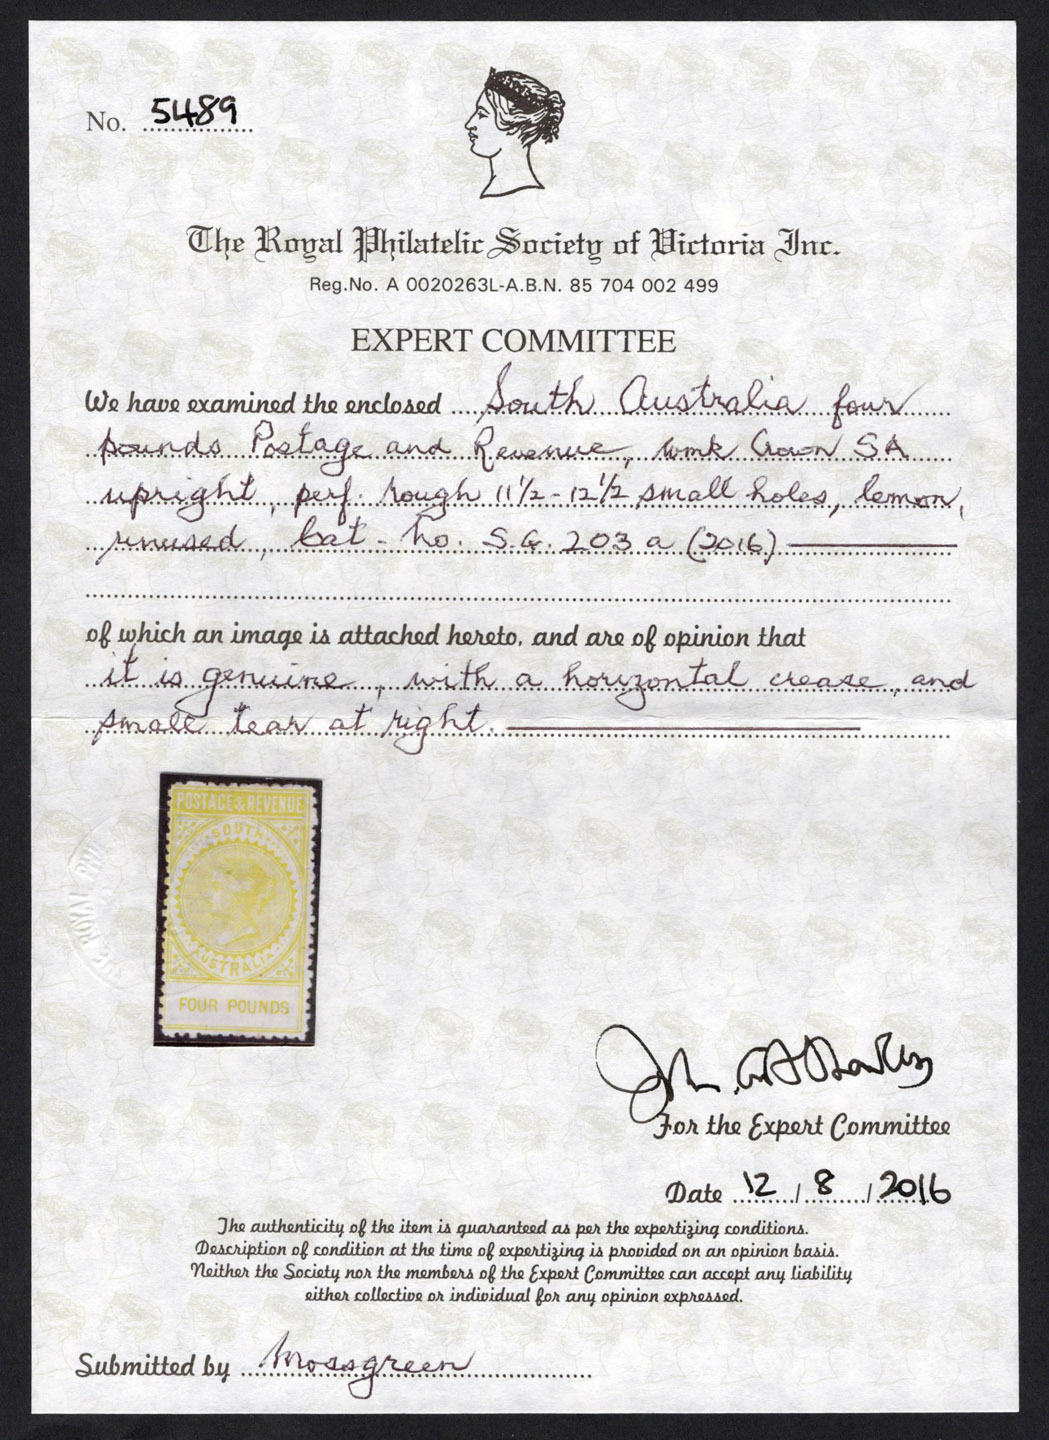 No. 5489
The Royal Philatelic Society of Victoria Inc.
Reg.No. A 0020263L-A.B.N. 85 704 002 499
EXPERT COMMITTEE
We have examined the enclosed South Australia four
pounds Postage and Revenue, wmk Crown SA
upright, perf. rough 11½-12½ small holes, lemon,
unused, Cat. no. S.G. 203a (2016)
of which an image is attached hereto, and are of opinion that
it is genuine, with a horizontal crease, and
small tear at right.
POSTAGE & REVENUE
SOUTH
AUSTRALIA
FOUR POUNDS
ROYAL PHI
For the Expert Committee
Date 12/8/2016
The authenticity of the item is guaranteed as per the expertizing conditions.
Description of condition at the time of expertizing is provided on an opinion basis.
Neither the Society nor the members of the Expert Committee can accept any liability
either collective or individual for any opinion expressed.
Submitted by Mossgreen